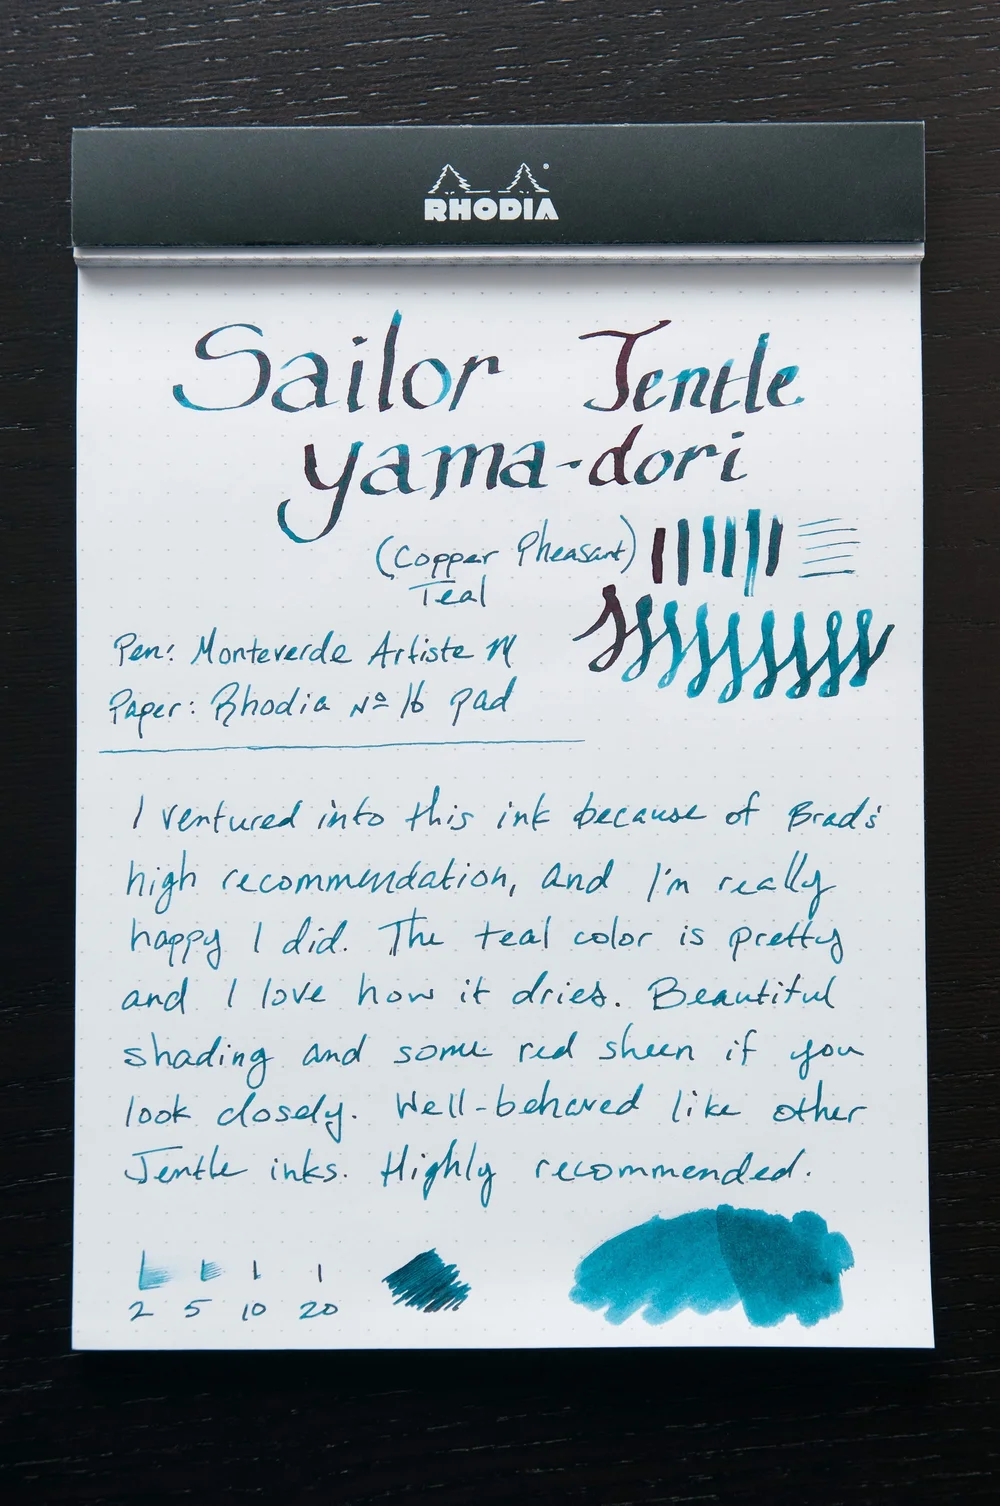 RHODIA
Sailor Jentle
yama-dori
(Copper Pheasant)
Teal
Pen: Monteverde Artiste M
Paper: Rhodia Nº 16 pad
I ventured into this ink because of Brad's
high recommendation, and I'm really
happy I did. The teal color is pretty
and I love how it dries. Beautiful
shading and some red sheen if you
look closely. Well-behaved like other
Jentle inks. Highly recommended.
2 5 10 20